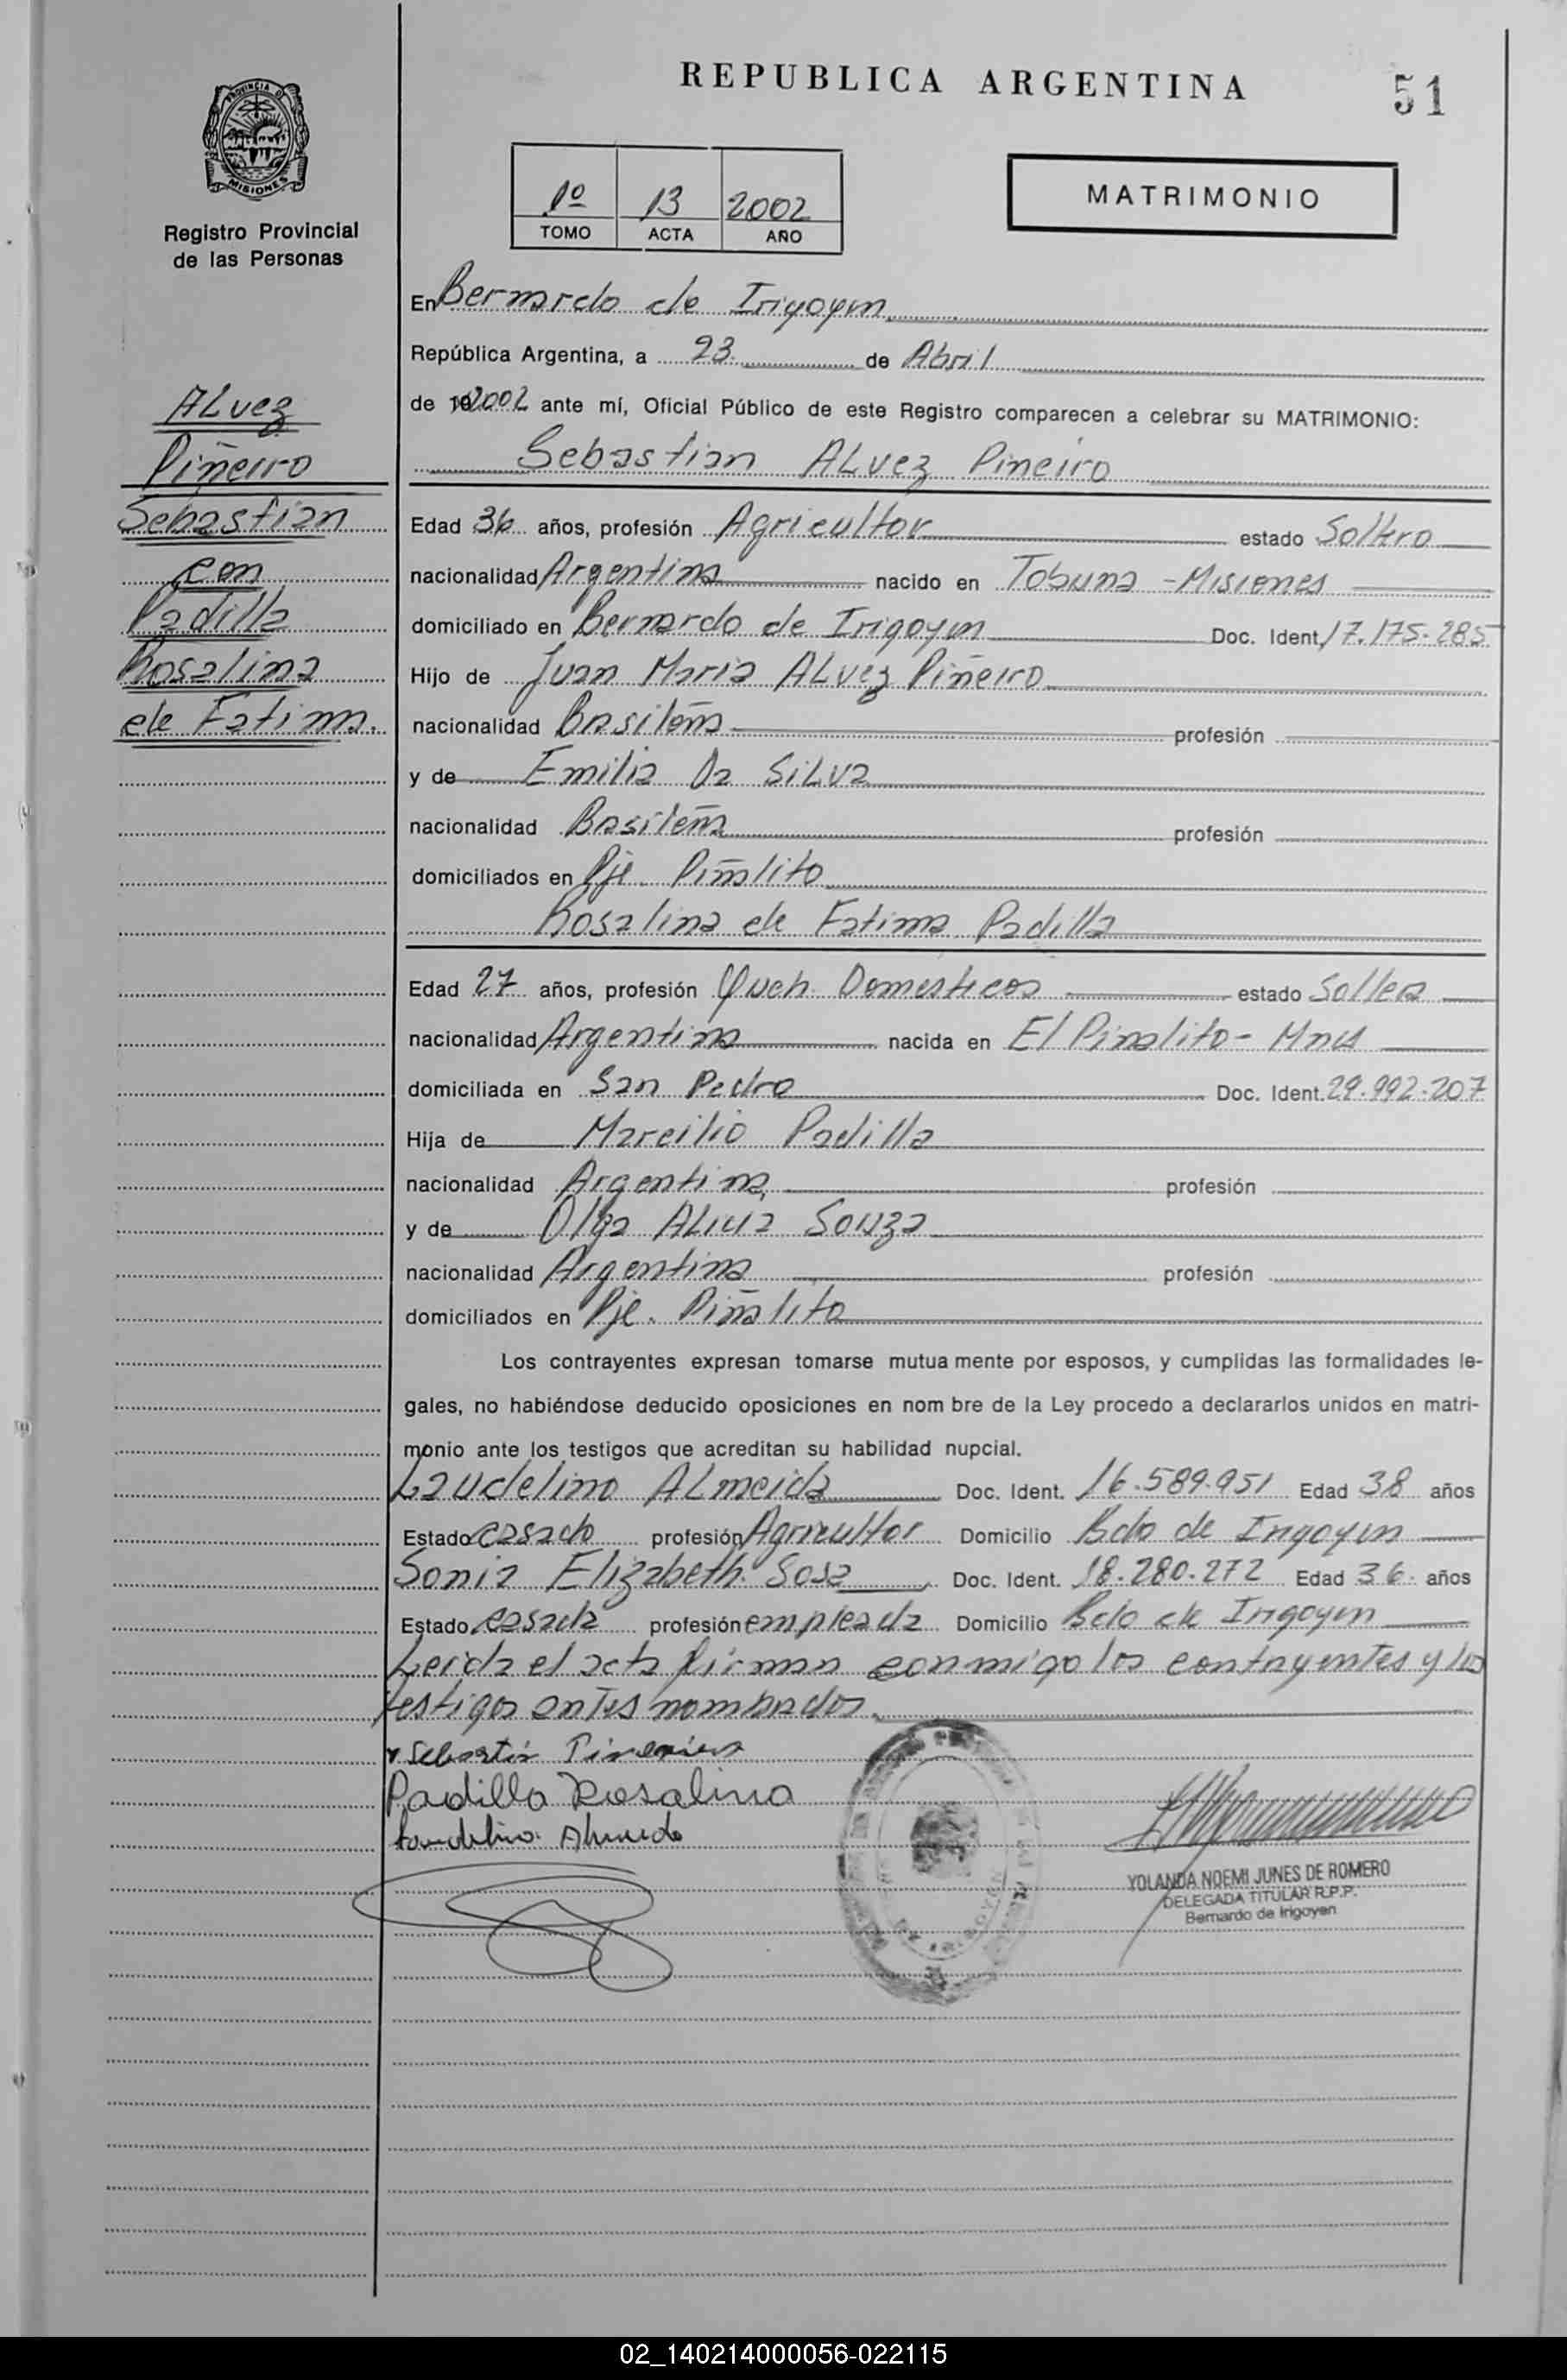 REPUBLICA ARGENTINA
51
PROVINCIA DE
MISIONES
Registro Provincial
de las Personas
1º 13 2002
TOMO ACTA AÑO
MATRIMONIO
ALvez
Piñeiro
Sebastian
con
Padilla
Rosalina
de Fatima.
En Bernardo de Irigoyen
República Argentina, a 23 de Abril
de 2002 ante mí, Oficial Público de este Registro comparecen a celebrar su MATRIMONIO:
Sebastian ALvez Piñeiro
Edad 36 años, profesión Agricultor estado Soltero
nacionalidad Argentina nacido en Tobuna - Misiones
domiciliado en Bernardo de Irigoyen Doc. Ident. 17.175.285
Hijo de Juan Maria ALvez Piñeiro
nacionalidad Brasileña profesión
y de Emilia Da SiLva
nacionalidad Brasileña profesión
domiciliados en Pje. Piñalito
Rosalina de Fatima Padilla
Edad 27 años, profesión Queh. Domesticos estado Soltera
nacionalidad Argentina nacida en El Piñalito - Mnes
domiciliada en San Pedro Doc. Ident. 29.992.207
Hija de Marcilio Padilla
nacionalidad Argentina profesión
y de Olga ALicia Souza
nacionalidad Argentina profesión
domiciliados en Pje. Piñalito
Los contrayentes expresan tomarse mutua mente por esposos, y cumplidas las formalidades le-
gales, no habiéndose deducido oposiciones en nom bre de la Ley procedo a declararlos unidos en matri-
monio ante los testigos que acreditan su habilidad nupcial.
Laudelino ALmeida Doc. Ident. 16.589.951 Edad 38 años
Estado casado profesión Agricultor Domicilio Bdo de Irigoyen
Sonia Elizabeth Sosa Doc. Ident. 18.280.272 Edad 36 años
Estado casada profesión empleada Domicilio Bdo de Irigoyen
Leida el acta firman conmigo los contrayentes y los
testigos antes nombrados.
Sebastián
Padilla Rosalina
Laudelino Almeida
YOLANDA NOEMI JUNES DE ROMERO
DELEGADA TITULAR R.P.P.
Bernardo de Irigoyen
02_140214000056-022115